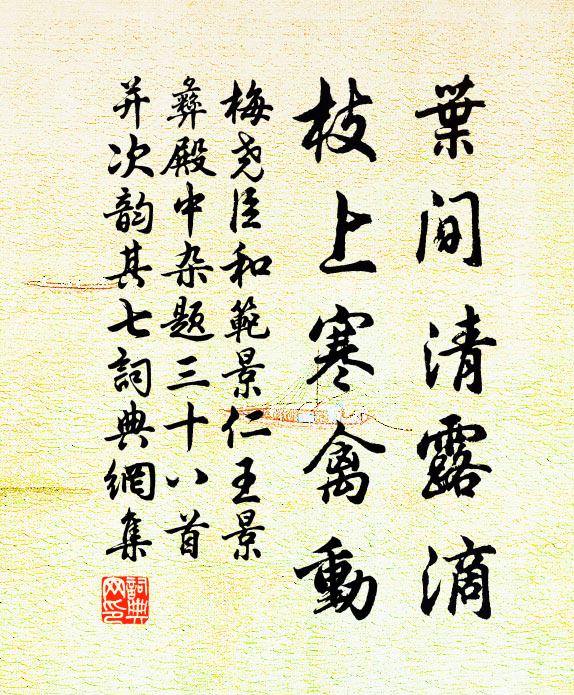 葉間清露滴
枝上寒禽動
梅尧臣和範景仁王景
彝殿中杂题三十八首
并次韵其七詞典網集
詞典
网印